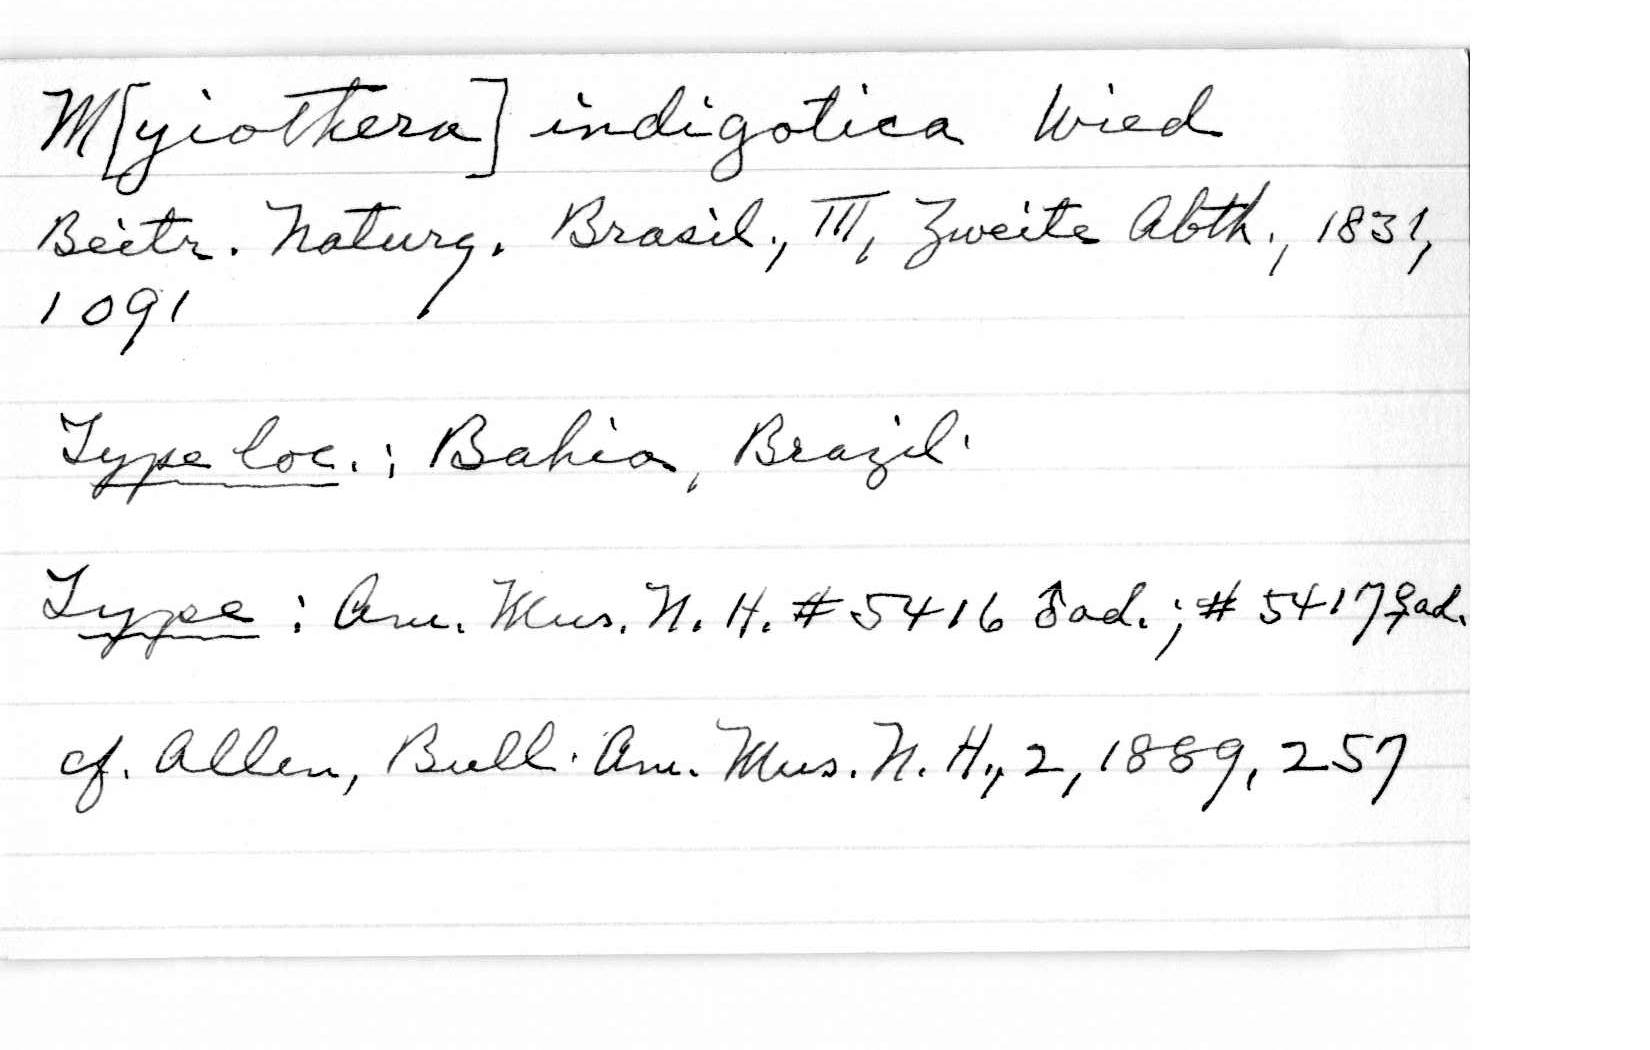 M[yiothera] indigotica Wied
Beitr. Naturg. Brasil., III, Zweite Abth., 1831,
1091
Type loc.: Bahia, Brazil.
Type: Am. Mus. N. H. # 5416 ♂ ad.; # 5417 ♀ ad.
cf. Allen, Bull. Am. Mus. N. H., 2, 1889, 257